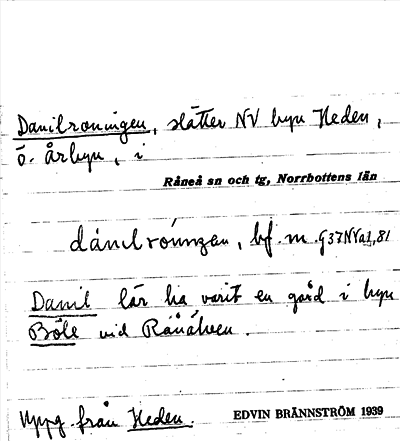 Danilroningen, slåtter NV byn Heden,
ö. Årbyn, i
Råneå sn och tg, Norrbottens län
bf. m. G37NVa1,81
Danil lär ha varit en gård i byn
Böle vid Råneälven.
Uppg. från Heden.
EDVIN BRÄNNSTRÖM 1939